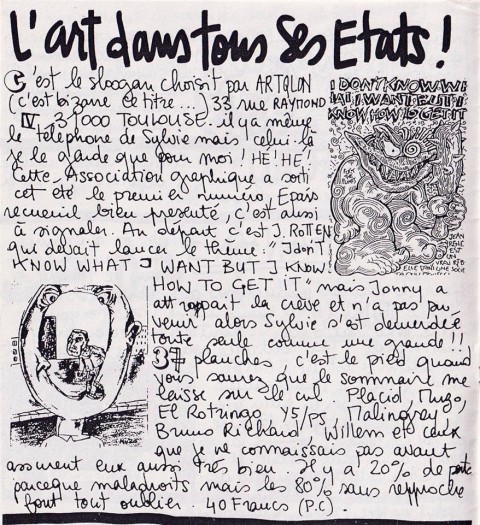 L'art dans tous ses Etats!
C'est le sloogan choisit par ARTQLON
(c'est bizare ce titre...) 33 rue RAYMOND
IV. 31000 TOULOUSE. il y a même
le téléphone de Sylvie mais celui-là
je le garde que pour moi! HE! HE!
Cette Association graphique a sorti
cet été le premier numéro, Epais
recueuil bien presenté, c'est aussi
à signaler. Au départ c'est J. ROTTEN
qui devait lancer le thème: "I don't
KNOW WHAT I WANT BUT I KNOW
HOW TO GET IT" mais Jonny a
attrappait la crève et n'a pas pu
venir alors Sylvie s'est demerdée
toute seule comme une grande!!
37 planches, c'est le pied quand
vous saurez que le sommaire me
laisse sur le cul. Placid, Muzo,
El Rotringo Y5/P5, Malingrey
Bruno Richard, Willem et ceux
que je ne connaissais pas avant
assurent eux aussi très bien. Il y a 20% de
parceque maladroits mais les 80% sans reproche
font tout oublier. 40 Francs (P.C).
I DON'T KNOW W
I WANT BUT I
KNOW HOW TO GET IT
JEAN
EST
UN
VRAI
ELLE DANS UNE
MUZO